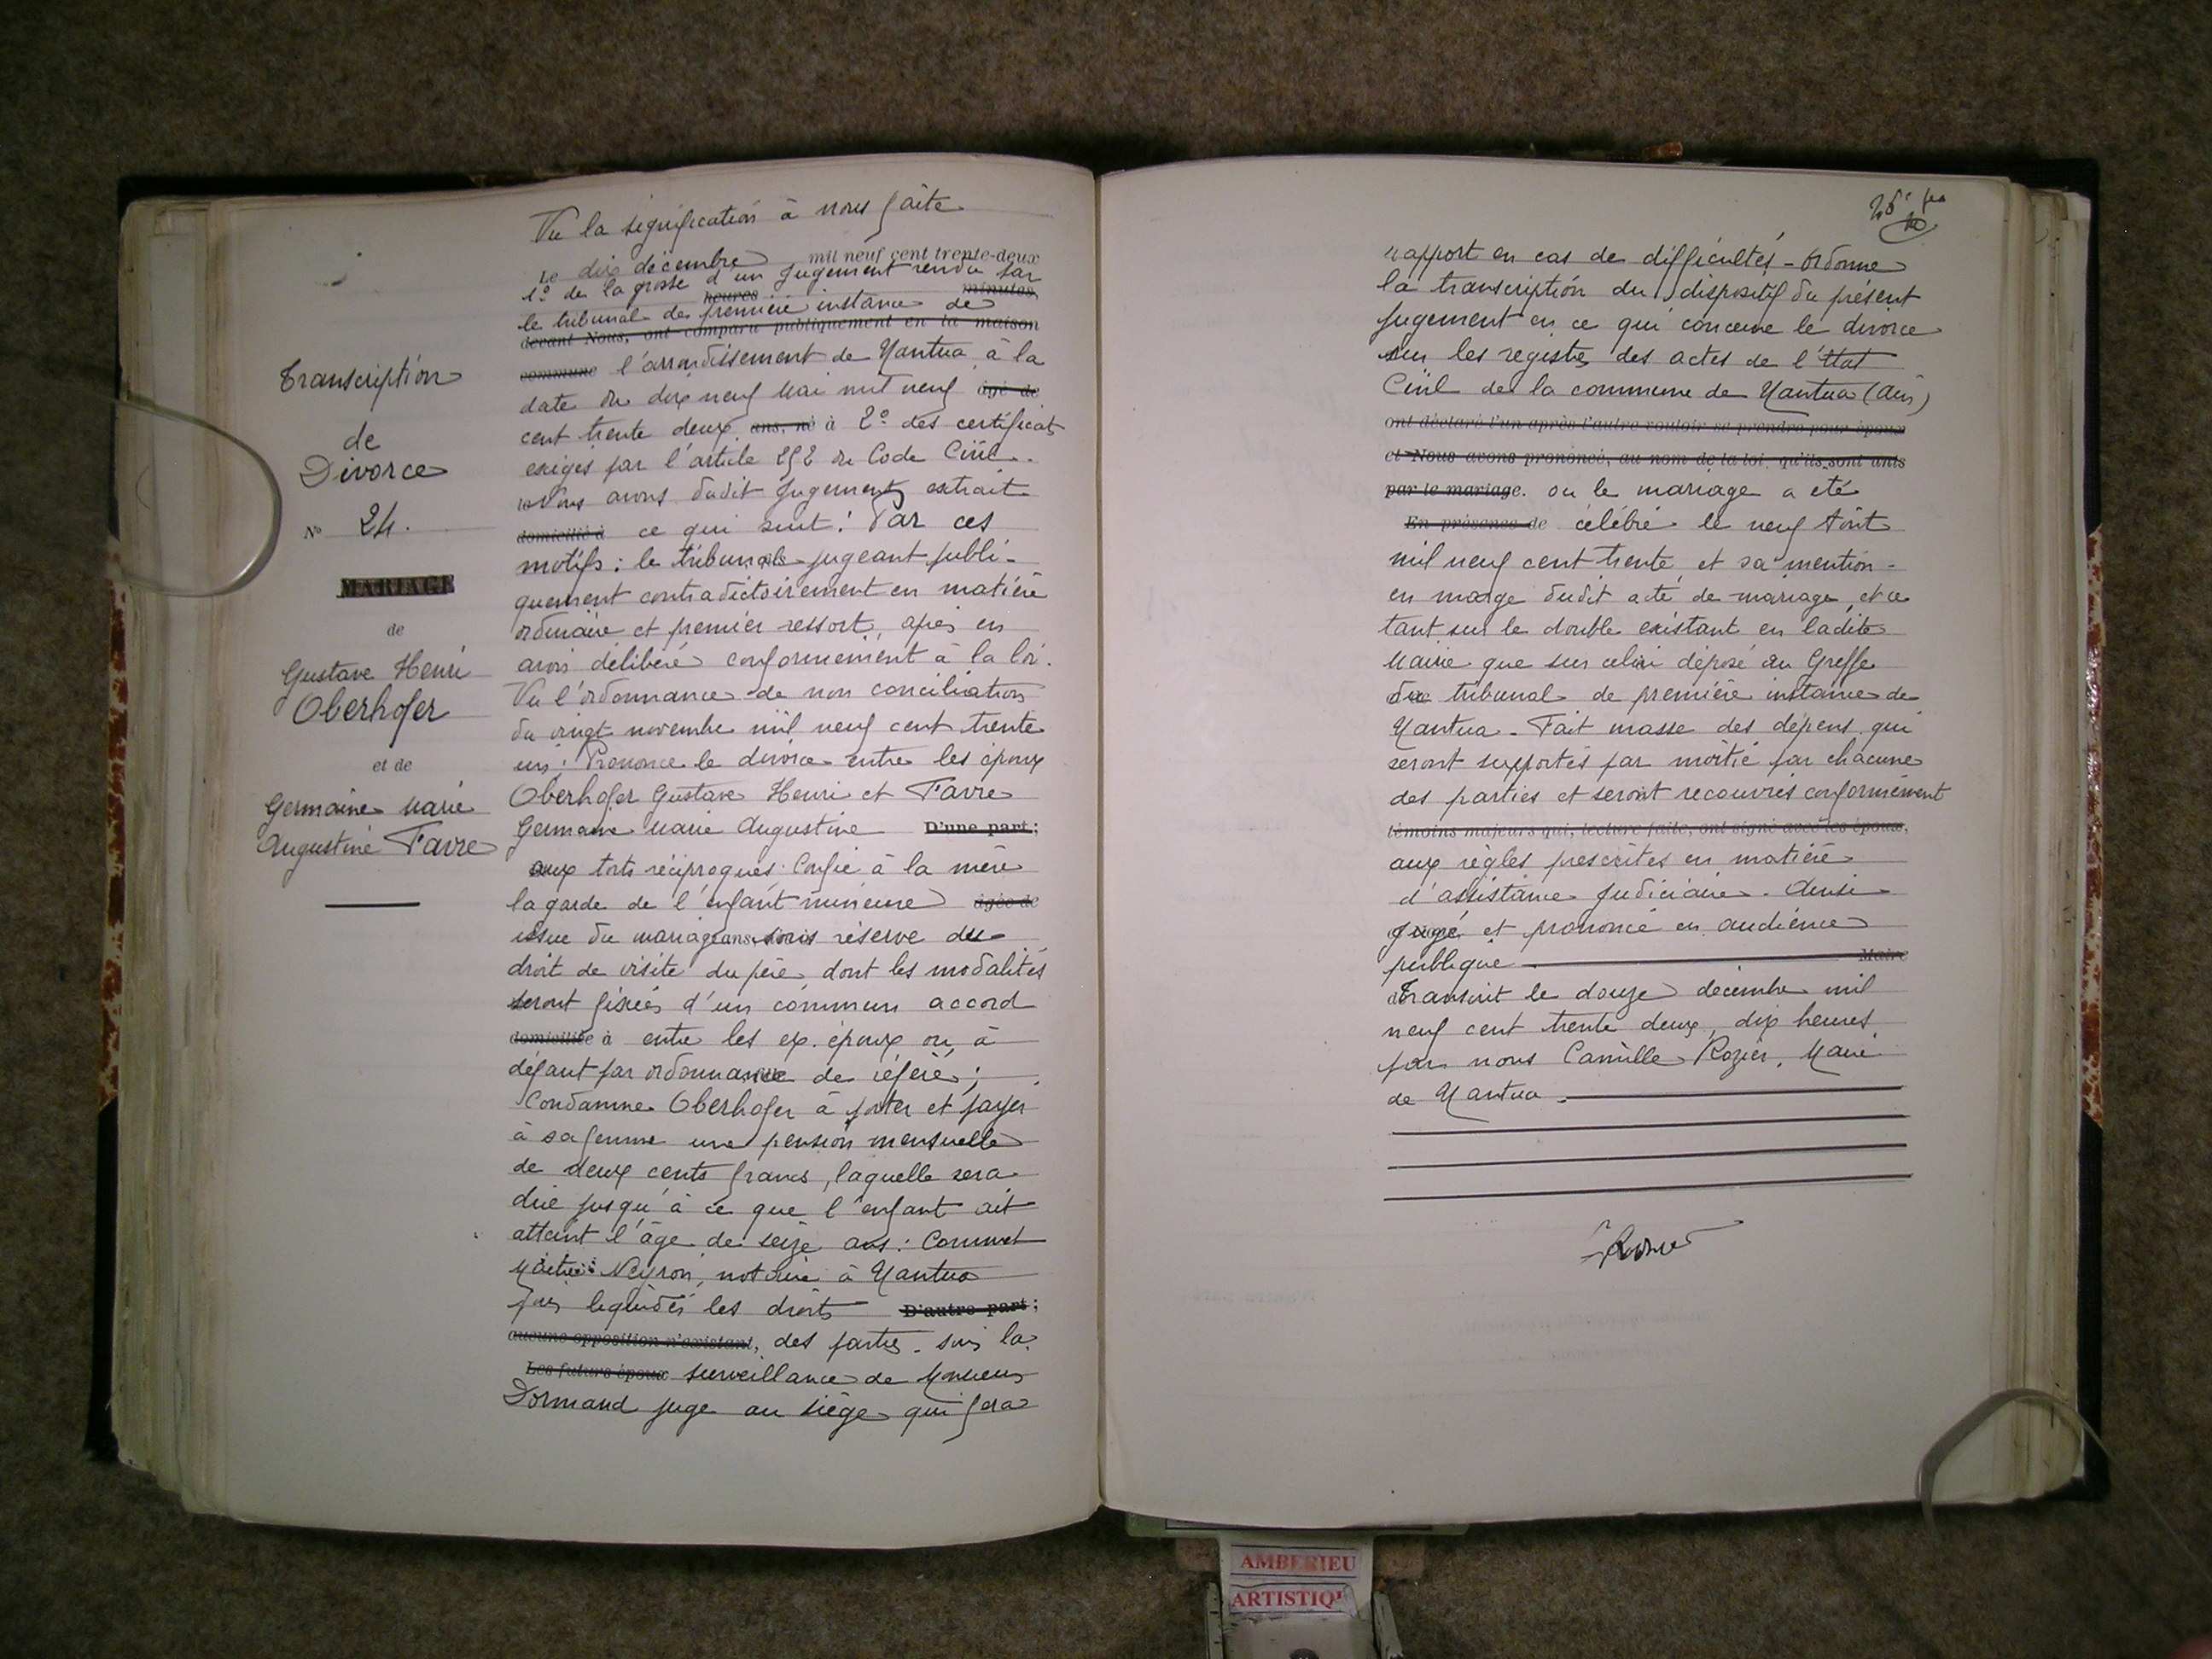 Transcription
de
Divorce
N° 24.
MARIAGE
de
Gustave Henri
Oberhofer
et de
Germaine Marie
Augustine Favre
Vu la signification à nous faite
Le dix décembre mil neuf cent trente-deux
1° de la grosse d'un jugement rendu par
heures minutes
le tribunal de première instance de
devant Nous, ont comparu publiquement en la maison
commune l'arrondissement de Nantua à la
date du dix neuf Mai mil neuf âgé de
cent trente deux ans, né à 2° des certificats
exigés par l'article 252 du Code Civil.
Nous avons dudit jugement extrait
domicilié à ce qui suit : Par ces
motifs : le tribunal jugeant publi-
quement contradictoirement en matière
ordinaire et premier ressort, après en
avoir délibéré conformément à la loi.
Vu l'ordonnance de non conciliation
du vingt novembre mil neuf cent trente
un : Prononce le divorce entre les époux
Oberhofer Gustave Henri et Favre
Germaine Marie Augustine D'une part ;
aux torts réciproques : Confie à la mère
la garde de l'enfant mineure âgée de
issue du mariage ans, sous réserve du
droit de visite du père dont les modalités
seront fixées d'un commun accord
domiciliée à entre les ex-époux ou à
défaut par ordonnance de référé ;
Condamne Oberhofer à porter et payer
à sa femme une pension mensuelle
de deux cents francs, laquelle sera
due jusqu'à ce que l'enfant ait
atteint l'âge de seize ans : Commet
Maître Neyron, notaire à Nantua
pour liquider les droits D'autre part ;
aucune opposition n'existant, des parties. sous la
Les futurs époux surveillance de Monsieur
Dormand juge au siège qui fera
26e
rapport en cas de difficultés - Ordonne
la transcription du dispositif du présent
jugement en ce qui concerne le divorce
sur les registres des actes de l'Etat
Civil de la commune de Nantua (Ain)
ont déclaré l'un après l'autre vouloir se prendre pour époux
et Nous avons prononcé, au nom de la loi, qu'ils sont unis
par le mariage. ou le mariage a été
En présence de célébré le neuf Août
mil neuf cent trente et sa mention
en marge dudit acte de mariage, et ce
tant sur le double existant en ladite
Mairie que sur celui déposé au Greffe
du tribunal de première instance de
Nantua - Fait masse des dépens qui
seront supportés par moitié par chacune
des parties et seront recouvrés conformément
témoins majeurs qui, lecture faite, ont signé avec les époux,
aux règles prescrites en matière
d'assistance judiciaire. Ainsi
jugé et prononcé en audience
publique Maire
Transcrit le douze décembre mil
neuf cent trente deux, dix heures
par nous Camille Rozier, Maire
de Nantua.
AMBERIEU
ARTISTIQU